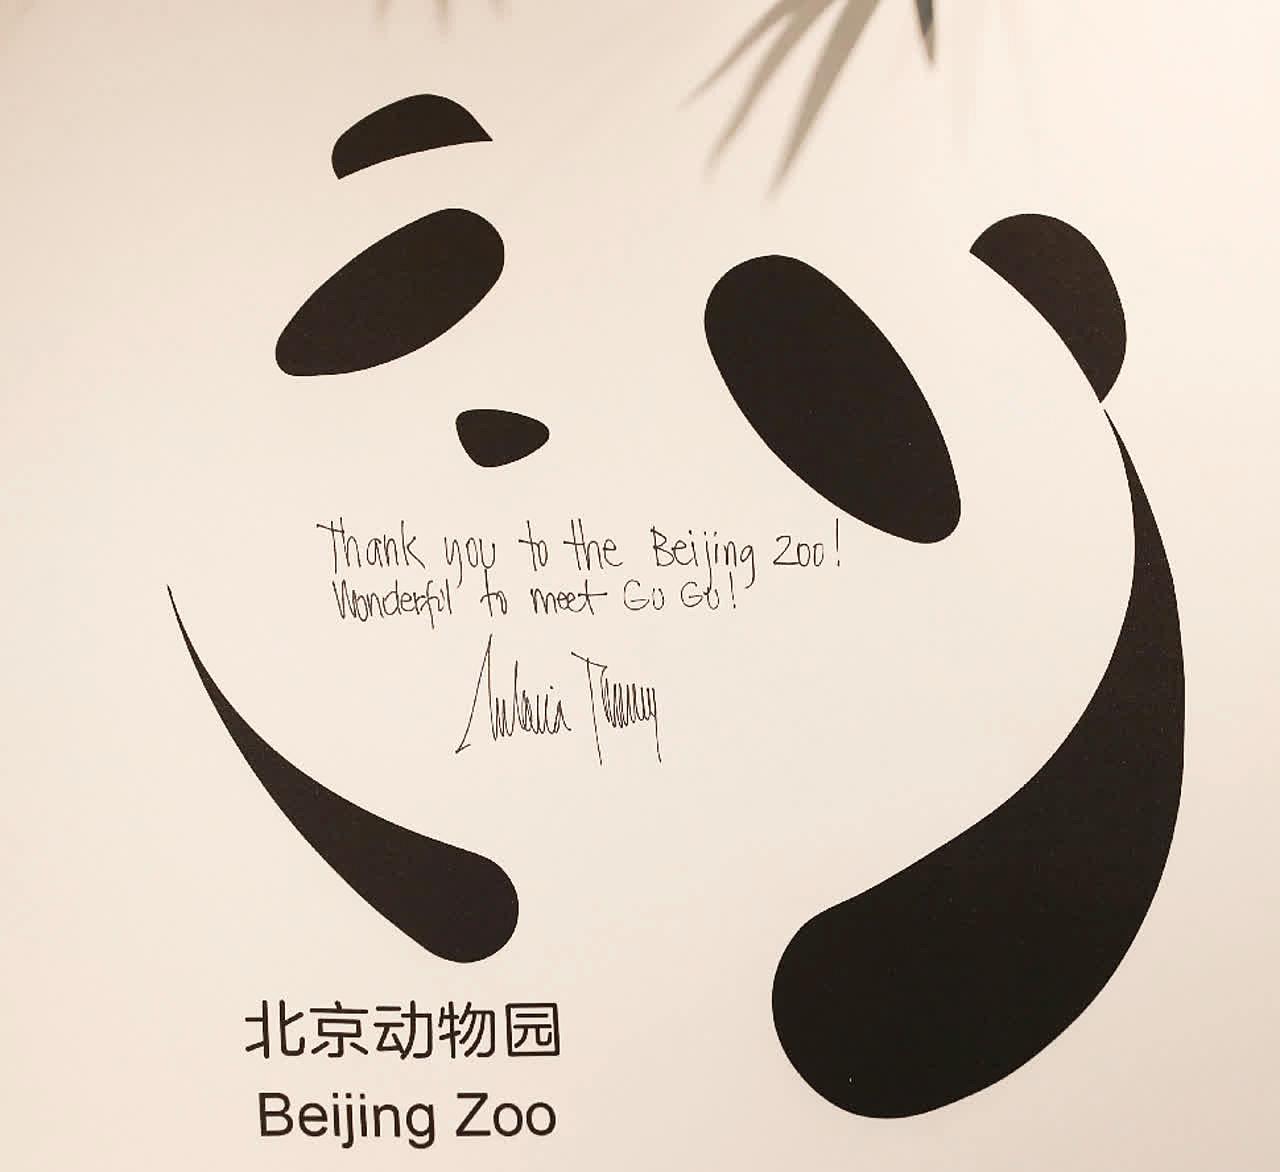 Thank you to the Beijing Zoo!
Wonderful to meet Gu Gu!
Melania Trump
北京动物园
Beijing Zoo